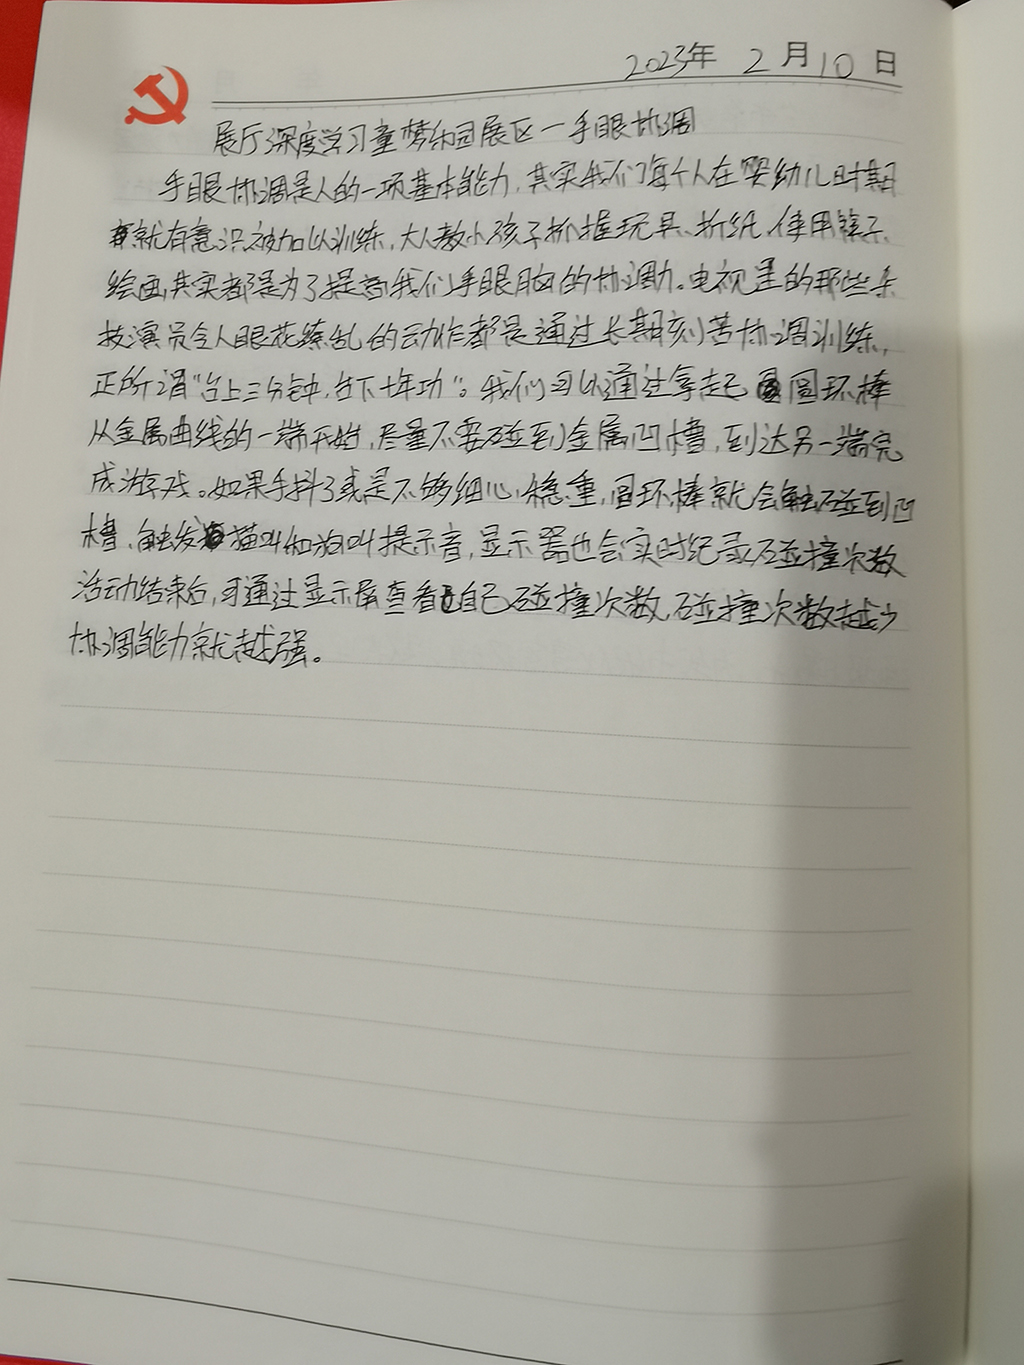 2023年 2月10日
展厅深度学习童梦幼园展区一手眼协调
手眼协调是人的一项基本能力,其实我们每个人在婴幼儿时期
就有意识被加以训练,大人教小孩子抓握玩具、折纸、使用筷子、
绘画,其实都是为了提高我们手眼脑的协调力。电视里的那些杂
技演员令人眼花缭乱的动作都是通过长期刻苦协调训练,
正所谓“台上三分钟,台下十年功”。我们可以通过拿起圆环棒
从金属曲线的一端开始,尽量不要碰到金属凹槽,到达另一端完
成游戏。如果手抖了或是不够细心、稳重,圆环棒就会触碰到凹
槽、触发猫叫和狗叫提示音,显示器也会实时纪录碰撞次数
活动结束后,可通过显示屏查看自己碰撞次数,碰撞次数越少
协调能力就越强。